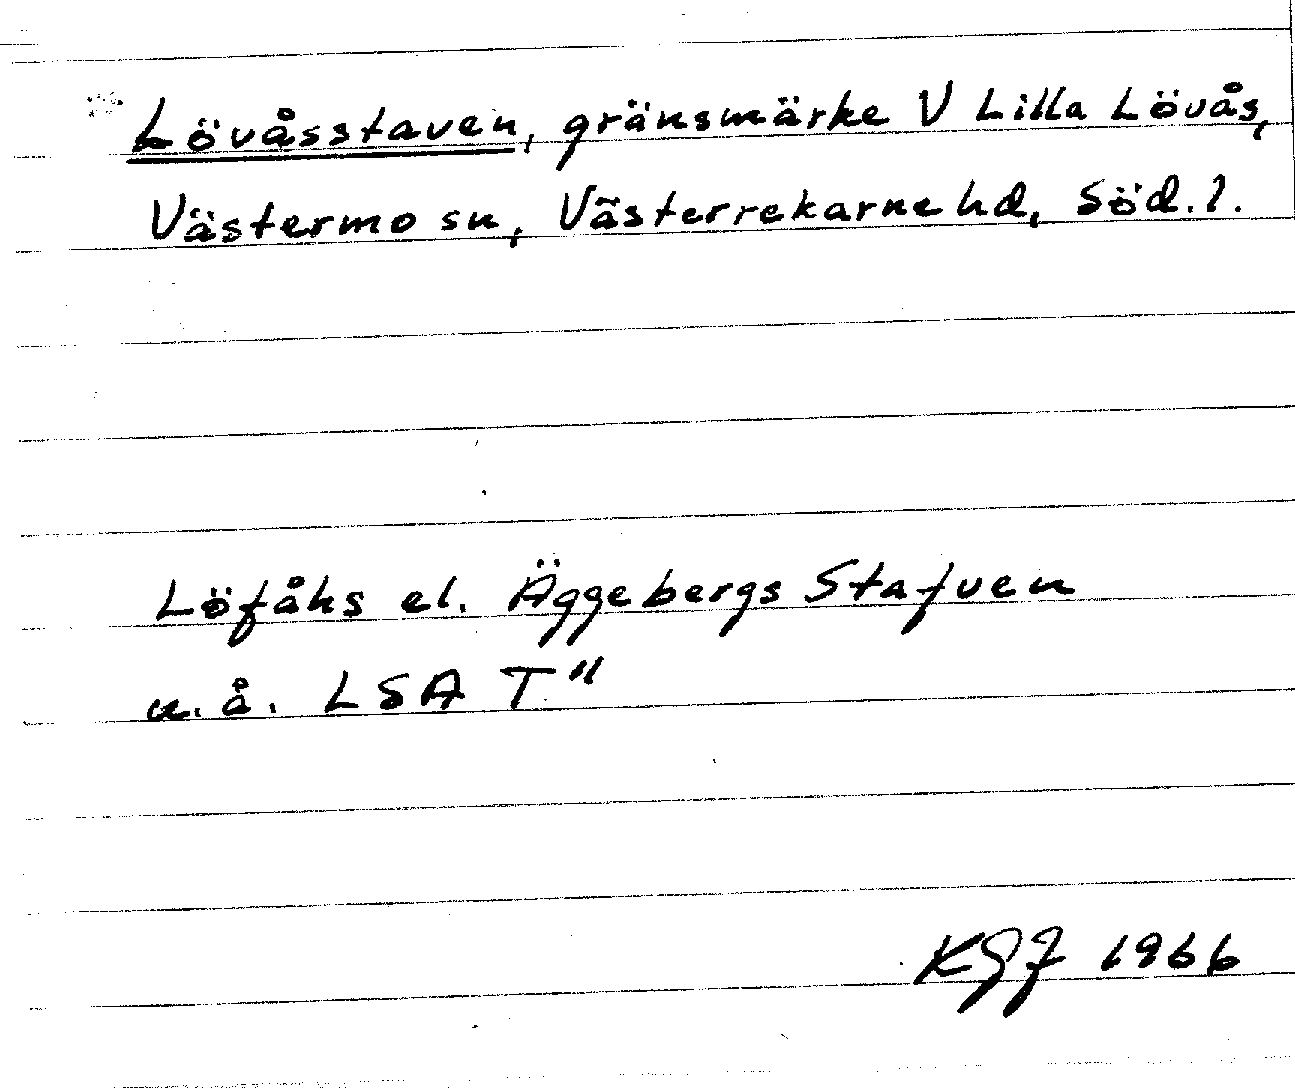 Lövåsstaven, gränsmärke V Lilla Lövås,
Västermo sn, Västerrekarne hd, Söd. l.
Löfåhs el. Äggebergs Stafven
u. å. LSA T"
KGJ 1966